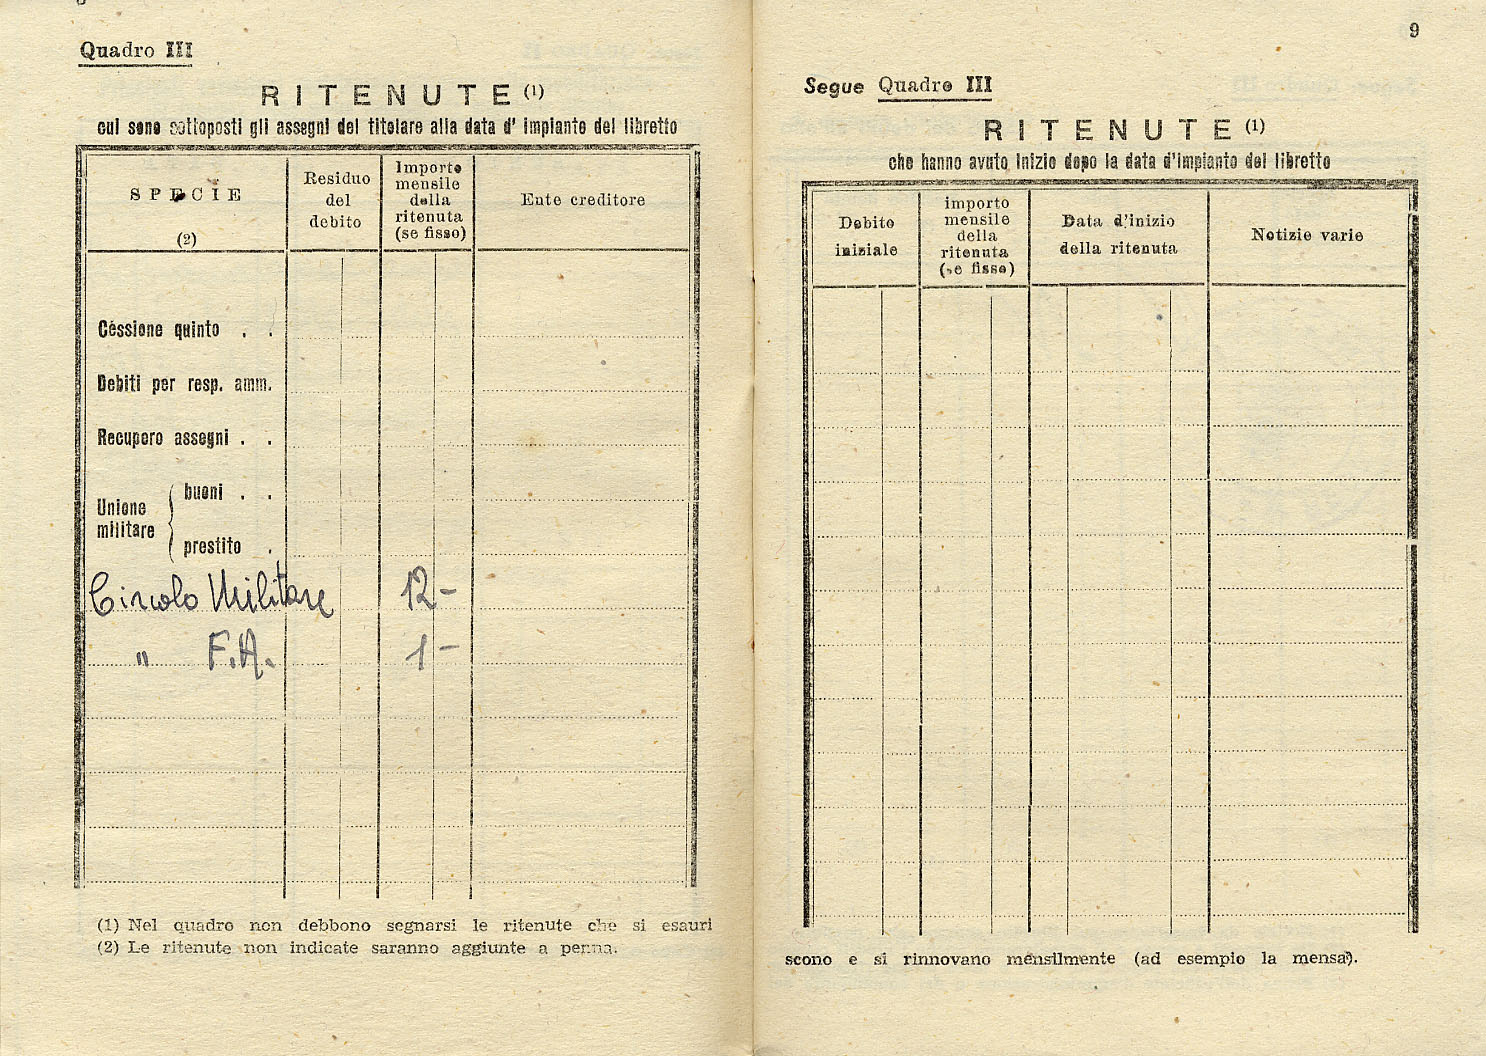 Quadro III
RITENUTE (1)
cui sono sottoposti gli assegni del titolare alla data d' impianto del libretto
SPECIE
(2)
Residuo
del
debito
Importo
mensile
della
ritenuta
(se fisso)
Ente creditore
Cessione quinto . .
Debiti per resp. amm.
Recupero assegni . .
Unione
militare
buoni . .
prestito .
Circolo Militare 12 –
" F.A. 1 –
(1) Nel quadro non debbono segnarsi le ritenute che si esauri
(2) Le ritenute non indicate saranno aggiunte a penna.
9
Segue Quadro III
RITENUTE (1)
che hanno avuto inizio dopo la data d'impianto del libretto
Debito
iniziale
importo
mensile
della
ritenuta
(se fisso)
Data d'inizio
della ritenuta
Notizie varie
scono e si rinnovano mensilmente (ad esempio la mensa).